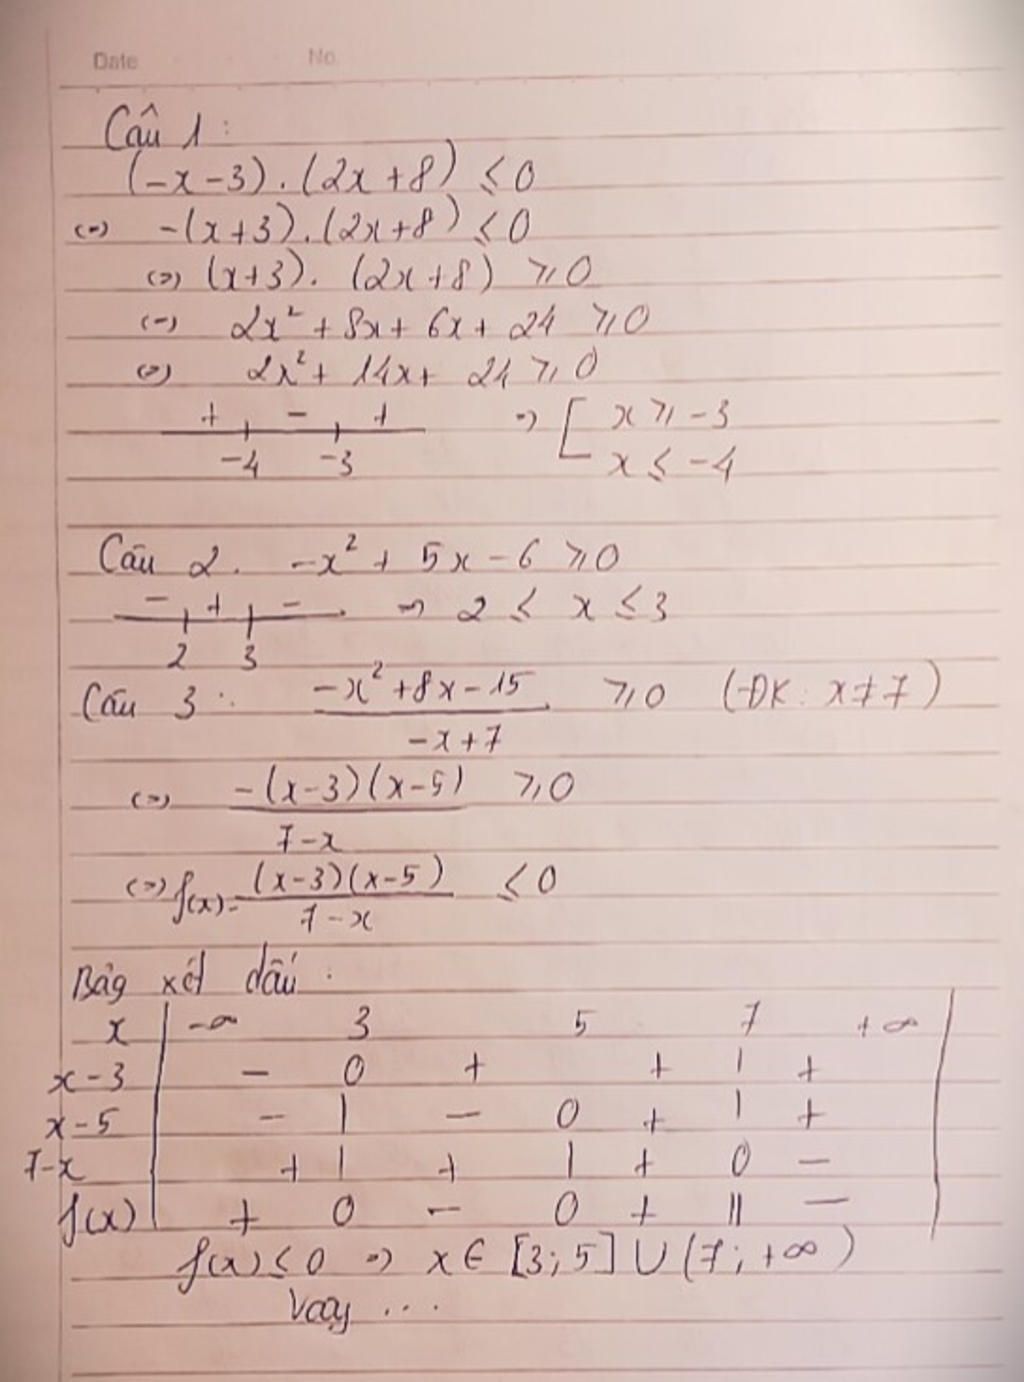 Date No.
Câu 1:
(-x-3).(2x+8) ≤ 0
(=) -(x+3).(2x+8) ≤ 0
(=) (x+3). (2x+8) ≥ 0
(=) 2x² + 8x + 6x + 24 ≥ 0
(=) 2x² + 14x + 24 ≥ 0
+ - + => [ x ≥ -3
-4 -3 x ≤ -4
Câu 2. -x² + 5x - 6 ≥ 0
- + - => 2 ≤ x ≤ 3
2 3
Câu 3: -x² + 8x - 15 ≥ 0 (ĐK: x ≠ 7)
-x + 7
(=) -(x-3)(x-5) ≥ 0
7-x
(=) f(x) = (x-3)(x-5) ≤ 0
7-x
Bảg xét dấu:
x | -∞ 3 5 7 +∞
x-3 | - 0 + + | +
x-5 | - | - 0 + | +
7-x | + | + | + 0 -
f(x) | + 0 - 0 + || -
f(x) ≤ 0 => x ∈ [3; 5] ∪ (7; +∞)
Vậy ...